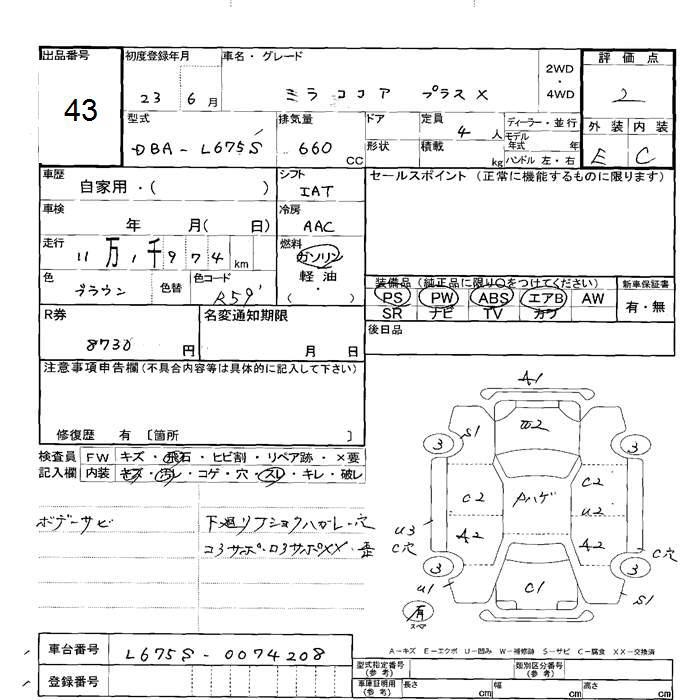 出品番号 初度登録年月 車名・グレード 2WD・4WD 評価点
43 23 6月 ミラココア プラスX 2
型式 排気量 ドア 定員 4人 ディーラー・並行 外装 内装
DBA-L675S 660cc 形状 積載 kg モデル年式 年 ハンドル 左・右 E C
車歴 シフト セールスポイント (正常に機能するものに限ります)
自家用・( ) IAT
車検 冷房
年 月( 日) AAC
走行 燃料
11万1千974km ガソリン
軽油
・
( )
色 色替 色コード
ブラウン R59
装備品 (純正品に限り○をつけてください) 新車保証書
PS PW ABS エアB AW 有・無
SR ナビ TV カワ
R券 名変通知期限 後日品
8730円 月 日
注意事項申告欄(不具合内容等は具体的に記入して下さい)
修復歴 有 〔箇所 〕
検査員 FW キズ・飛石・ヒビ割・リペア跡・×要
記入欄 内装 キズ・汚レ・コゲ・穴・スレ・キレ・破レ
ボデーサビ 下廻りフショクハガレ・穴
コ3サポ・ロ3サポXX・歪
A1
S1 W2
3 3
C2 Pハゲ C2
U2
U3 A2 A2
C穴 C穴
3 3
U1 C1 S1
有
スペア
A-キズ E-エクボ U-凹み W-補修跡 S-サビ C-腐食 XX-交換済
車台番号 L675S-0074208
登録番号
型式指定番号(参考) 類別区分番号(参考)
車庫証明用(参考) 長さ cm 幅 cm 高さ cm